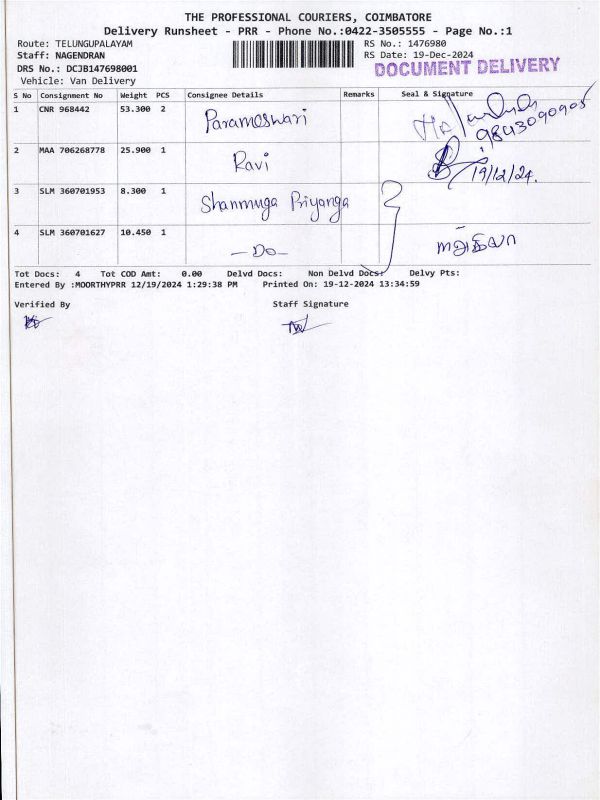 THE PROFESSIONAL COURIERS, COIMBATORE
Delivery Runsheet - PRR - Phone No.:0422-3505555 - Page No.:1
Route: TELUNGUPALAYAM RS No.: 1476980
Staff: NAGENDRAN RS Date: 19-Dec-2024
DRS No.: DCJB147698001 DOCUMENT DELIVERY
Vehicle: Van Delivery
S No Consignment No Weight PCS Consignee Details Remarks Seal & Signature
1 CNR 968442 53.300 2 Parameswari 9843090905
2 MAA 706268778 25.900 1 Ravi 19/12/24.
3 SLM 360701953 8.300 1 Shanmuga Priyanga
4 SLM 360701627 10.450 1 —Do—
Tot Docs: 4 Tot COD Amt: 0.00 Delvd Docs: Non Delvd Docs: Delvy Pts:
Entered By :MOORTHYPRR 12/19/2024 1:29:38 PM Printed On: 19-12-2024 13:34:59
Verified By Staff Signature